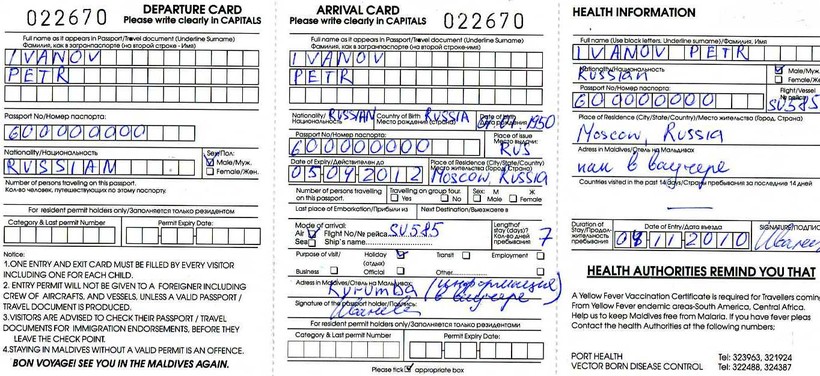 DEPARTURE CARD
Please write clearly in CAPITALS
022670
Full name as it appears in Passport/Travel document (Underline Surname)
Фамилия, как в загранпаспорте (на второй строке - Имя)
IVANOV
PETR
Passport No/Номер паспорта:
600000000
Nationality/Национальность
RUSSIAN
Sex/Пол:
Male/Муж.
Female/Жен.
Number of persons traveling on this passport.
Кол-во человек, путешествующих по этому паспорту.
For resident permit holders only/Заполняется только резидентом
Category & Last Permit Number
Permit Expiry Date:
Notice:
1.ONE ENTRY AND EXIT CARD MUST BE FILLED BY EVERY VISITOR
INCLUDING ONE FOR EACH CHILD.
2. ENTRY PERMIT WILL NOT BE GIVEN TO A FOREIGNER INCLUDING
CREW OF AIRCRAFTS, AND VESSELS, UNLESS A VALID PASSPORT /
TRAVEL DOCUMENT IS PRODUCED.
3.VISITORS ARE ADVISED TO CHECK THEIR PASSPORT / TRAVEL
DOCUMENTS FOR IMMIGRATION ENDORSEMENTS, BEFORE THEY
LEAVE THE CHECK POINT.
4.STAYING IN MALDIVES WITHOUT A VALID PERMIT IS AN OFFENCE.
BON VOYAGE! SEE YOU IN THE MALDIVES AGAIN.
ARRIVAL CARD
Please write clearly in CAPITALS
022670
Full name as it appears in Passport/Travel document (Underline Surname)
Фамилия, как в загранпаспорте (на второй строке-имя)
IVANOV
PETR
Nationality/Национальность RUSSIAN
Country of Birth Место рождения (страна) RUSSIA
Date of birth 1950
Passport No/Номер паспорта:
600000000
Place of issue
Место выдачи:
RUS
Date of Expiry/Действителен до
05 04 2012
Place of Residence (City/State/Country)
Место жительства (Город, Страна)
Moscow, Russia
Number of persons travelling on this passport.
Travelling on group tour.
Yes No
Sex: М Ж
Male Female
Last place of Embarkation/Прибыли из
Next Destination/Выезжаете в
Mode of arrival:
Air Flight No/№ рейса SU585
Sea Ship's name
Length of stay (days)?
Кол-во дней пребывания
7
Purpose of visit/ Holiday (отдых) Transit Employment
Business Official Other
Adress in Maldives/Отель на Мальдивах:
Kurumba (информация в ваучере)
Signature of the passport holder/Подпись:
For resident permit holders only/Заполняется только резидентами
Category & Last Permit Number
Permit Expiry Date:
Please tick appropriate box
HEALTH INFORMATION
Full name (Use block letters, Underline surname)/Фамилия, Имя
IVANOV PETR
Nationality/Национальность
Russian
Male/Муж.
Female/Жен.
Passport No/Номер паспорта:
600000000
Flight/Vessel
№ рейса
SU585
Place of Residence (City/State/Country)/ Место жительства (Город, Страна)
Moscow, Russia
Adress in Maldives/Отель на Мальдивах
как в ваучере
Countries visited in the past 14 days/Страны пребывания за последние 14 дней
Duration of Stay/Продолжительность пребывания
Date of Entry/Дата въезда
08 11 2010
HEALTH AUTHORITIES REMIND YOU THAT
A Yellow Fever Vaccination Certificate is required for Travellers coming
From Yellow Fever endemic areas-South America, Central Africa.
Help us to keep Maldives free from Malaria. If you have fever pleas
Contact the health Authorities at the following numbers:
PORT HEALTH Tel: 323963, 321924
VECTOR BORN DISEASE CONTROL Tel: 322488, 324387